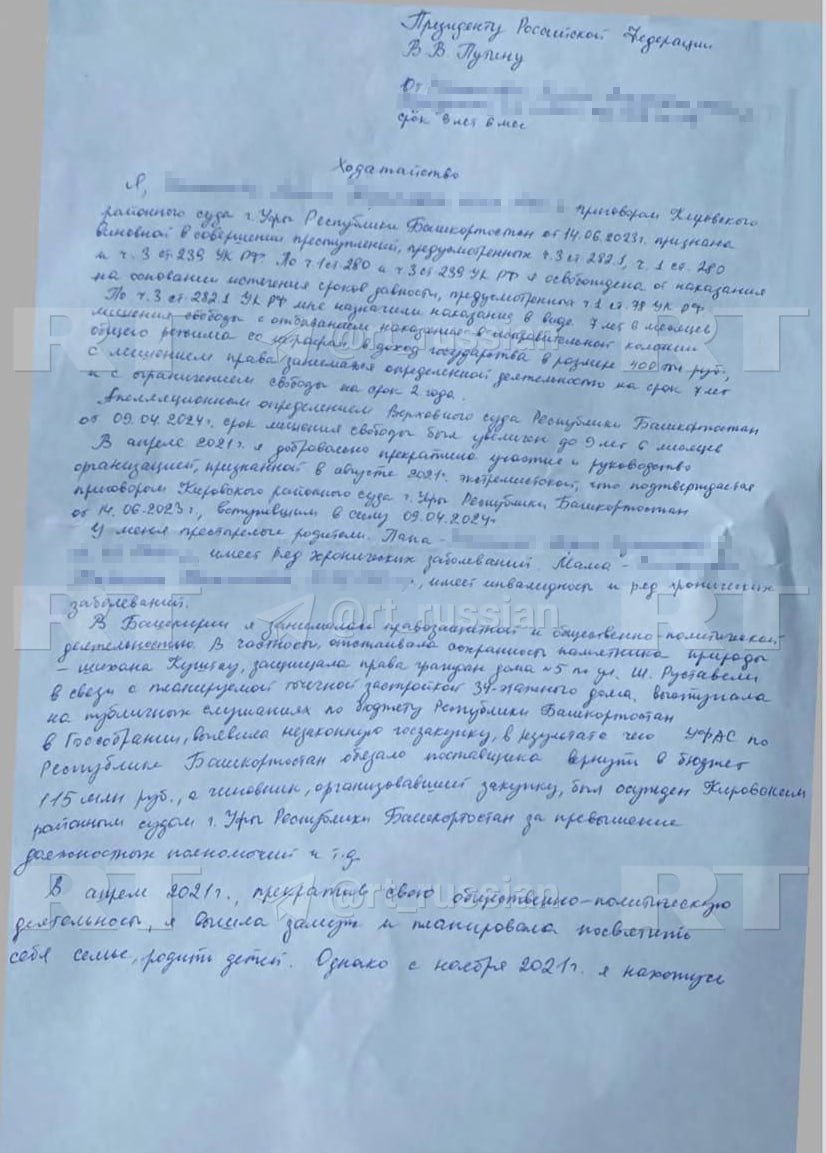 Президенту Российской Федерации
В.В. Путину
От
срок 9 лет 6 мес
Ходатайство
Я, приговором Кировского
районного суда г. Уфы Республики Башкортостан от 14.06.2023г. признана
виновной в совершении преступлений, предусмотренных ч.3 ст 282.1, ч. 1 ст. 280
и ч. 3 ст 239 УК РФ. По ч.1 ст 280 и ч 3 ст 239 УК РФ я освобождена от наказания
на основании истечения сроков давности, предусмотренных ч 1 ст. 78 УК РФ.
По ч. 3 ст. 282.1 УК РФ мне назначили наказание в виде 7 лет 6 месяцев
лишения свободы с отбыванием наказание в исправительной колонии
общего режима со штрафом в доход государства в размере 400 тыс руб.,
с лишением права заниматься определенной деятельностью на срок 7 лет
и с ограничением свободы на срок 2 года.
Апелляционном определением Верховного суда Республики Башкортостан
от 09.04.2024г. срок лишения свободы был увеличен до 9 лет 6 месяцев
В апреле 2021г. я добровольно прекратила участие и руководство
организацией, признанной в августе 2021г. экстремистской, что подтверждается
приговором Кировского районного суда г. Уфы Республики Башкортостан
от 14.06.2023г., вступившим в силу 09.04.2024г
У меня престарелые родители. Папа -
имеет ряд хронических заболеваний. Мама -
, имеет инвалидность и ряд хронических
заболеваний.
В Башкирии я занималась правозащитной и общественно-политической
деятельностью. В частности, отстаивала сохранность памятника природы
- шихана Куштау, защищала права граждан дома №5 по ул. Ш. Руставели
в связи с планируемой точечной застройкой 34-этажного дома, выступала
на публичных слушаниях по бюджету Республики Башкортостан
в Госсобрании, выявила незаконную госзакупку, в результате чего УФАС по
Республике Башкортостан обязало поставщика вернуть в бюджет
115 млн руб., а чиновник, организовавший закупку, был осужден Кировским
районным судом г. Уфы Республики Башкортостан за превышение
должностных полномочий и т.д.
В апреле 2021г., прекратив свою общественно-политическую
деятельность, я вышла замуж и планировала посвятить
себя семье, родить детей. Однако с ноября 2021г. я нахожусь
RT @rt_russian RT
RT @rt_russian RT
RT @rt_russian RT